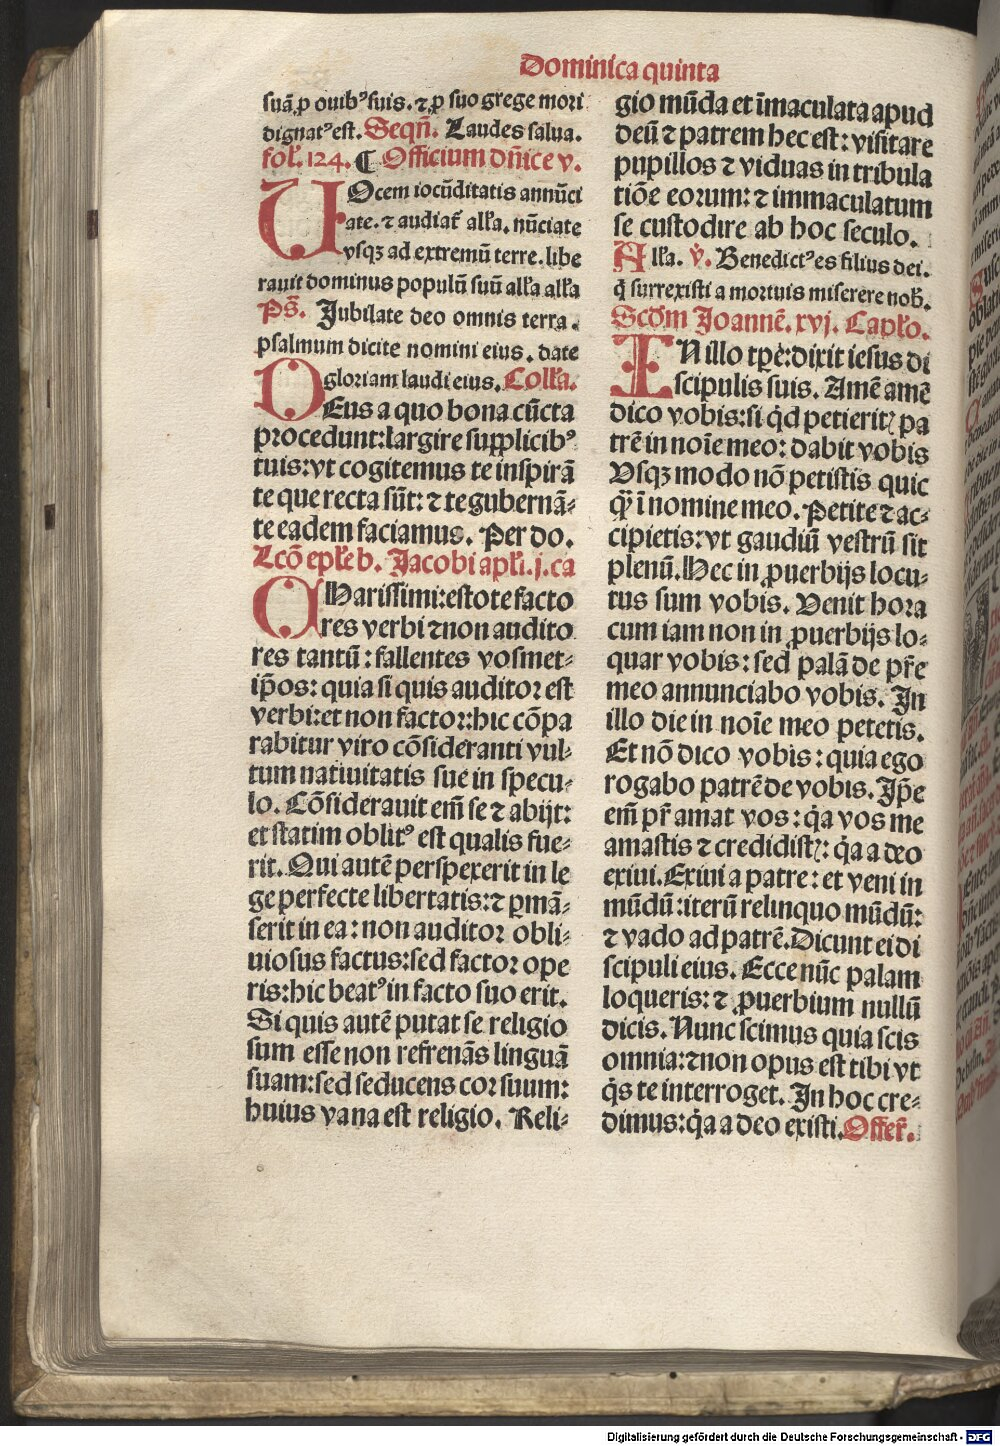 Dominica quinta
suã ꝓ ouibꝰ suis. ⁊ ꝓ suo grege mori
dignatꝰ est. Seqñ. Laudes salua.
fol. 124. ¶ Officium dñice v.
VOcem iocũditatis annũci
ate. ⁊ audiat᷑ alľa. nũciate
vsqꝫ ad extremũ terre. libe
rauit dominus populũ suũ alľa alľa
Ps̃. Jubilate deo omnis terra.
psalmum dicite nomini eius. date
gloriam laudi eius. Colľa.
DEus a quo bona cũcta
procedunt: largire supplicibꝰ
tuis: vt cogitemus te inspirã
te que recta sũt: ⁊ te gubernã⸗
te eadem faciamus. Per do.
Lcõ epľe b. Jacobi apľi. j. ca
CHarissimi: estote facto
res verbi ⁊ non audito
res tantũ: fallentes vosmet⸗
ip̃os: quia si quis auditor est
verbi: et non factor: hic cõpa
rabitur viro cõsideranti vul⸗
tum natiuitatis sue in specu⸗
lo. Cõsiderauit em̃ se ⁊ abijt:
et statim oblitꝰ est qualis fue⸗
rit. Qui autẽ perspexerit in le
ge perfecte libertatis: ⁊ ꝑmã⸗
serit in ea: non auditor obli⸗
uiosus factus: sed factor ope
ris: hic beatꝰ in facto suo erit.
Si quis autẽ putat se religio
sum esse non refrenãs linguã
suam: sed seducens cor suum:
huius vana est religio. Reli⸗
gio mũda et ĩmaculata apud
deũ ⁊ patrem hec est: visitare
pupillos ⁊ viduas in tribula
tiõe eorum: ⁊ immaculatum
se custodire ab hoc seculo.
Alľa. ꝟ. Benedictꝰ es filius dei.
q̇ surrexisti a mortuis miserere nob̃.
Scđm Joannẽ. xvj. Capľo.
IN illo tꝑe: dixit iesus di
scipulis suis. Amẽ amẽ
dico vobis: si qͥd petieritꝭ pa
trẽ in noĩe meo: dabit vobis
Vsqꝫ modo nõ petistis quic
q̃ ĩ nomine meo. Petite ⁊ ac⸗
cipietis: vt gaudiũ vestrũ sit
plenũ. Hec in ꝓuerbijs locu⸗
tus sum vobis. Venit hora
cum iam non in ꝓuerbijs lo⸗
quar vobis: sed palã de pr̃e
meo annunciabo vobis. In
illo die in noĩe meo petetis.
Et nõ dico vobis: quia ego
rogabo patrẽ de vobis. Ip̃e
em̃ pr̃ amat vos: q̇a vos me
amastis ⁊ credidistꝭ: q̇a a deo
exiui. Exiui a patre: et veni in
mũdũ: iterũ relinquo mũdũ:
⁊ vado ad patrẽ. Dicunt ei di
scipuli eius. Ecce nũc palam
loqueris: ⁊ ꝓuerbium nullũ
dicis. Nunc scimus quia scis
omnia: ⁊ non opus est tibi vt
q̇s te interroget. In hoc cre⸗
dimus: q̇a a deo existi. Offer̃.
Digitalisierung gefördert durch die Deutsche Forschungsgemeinschaft - DFG